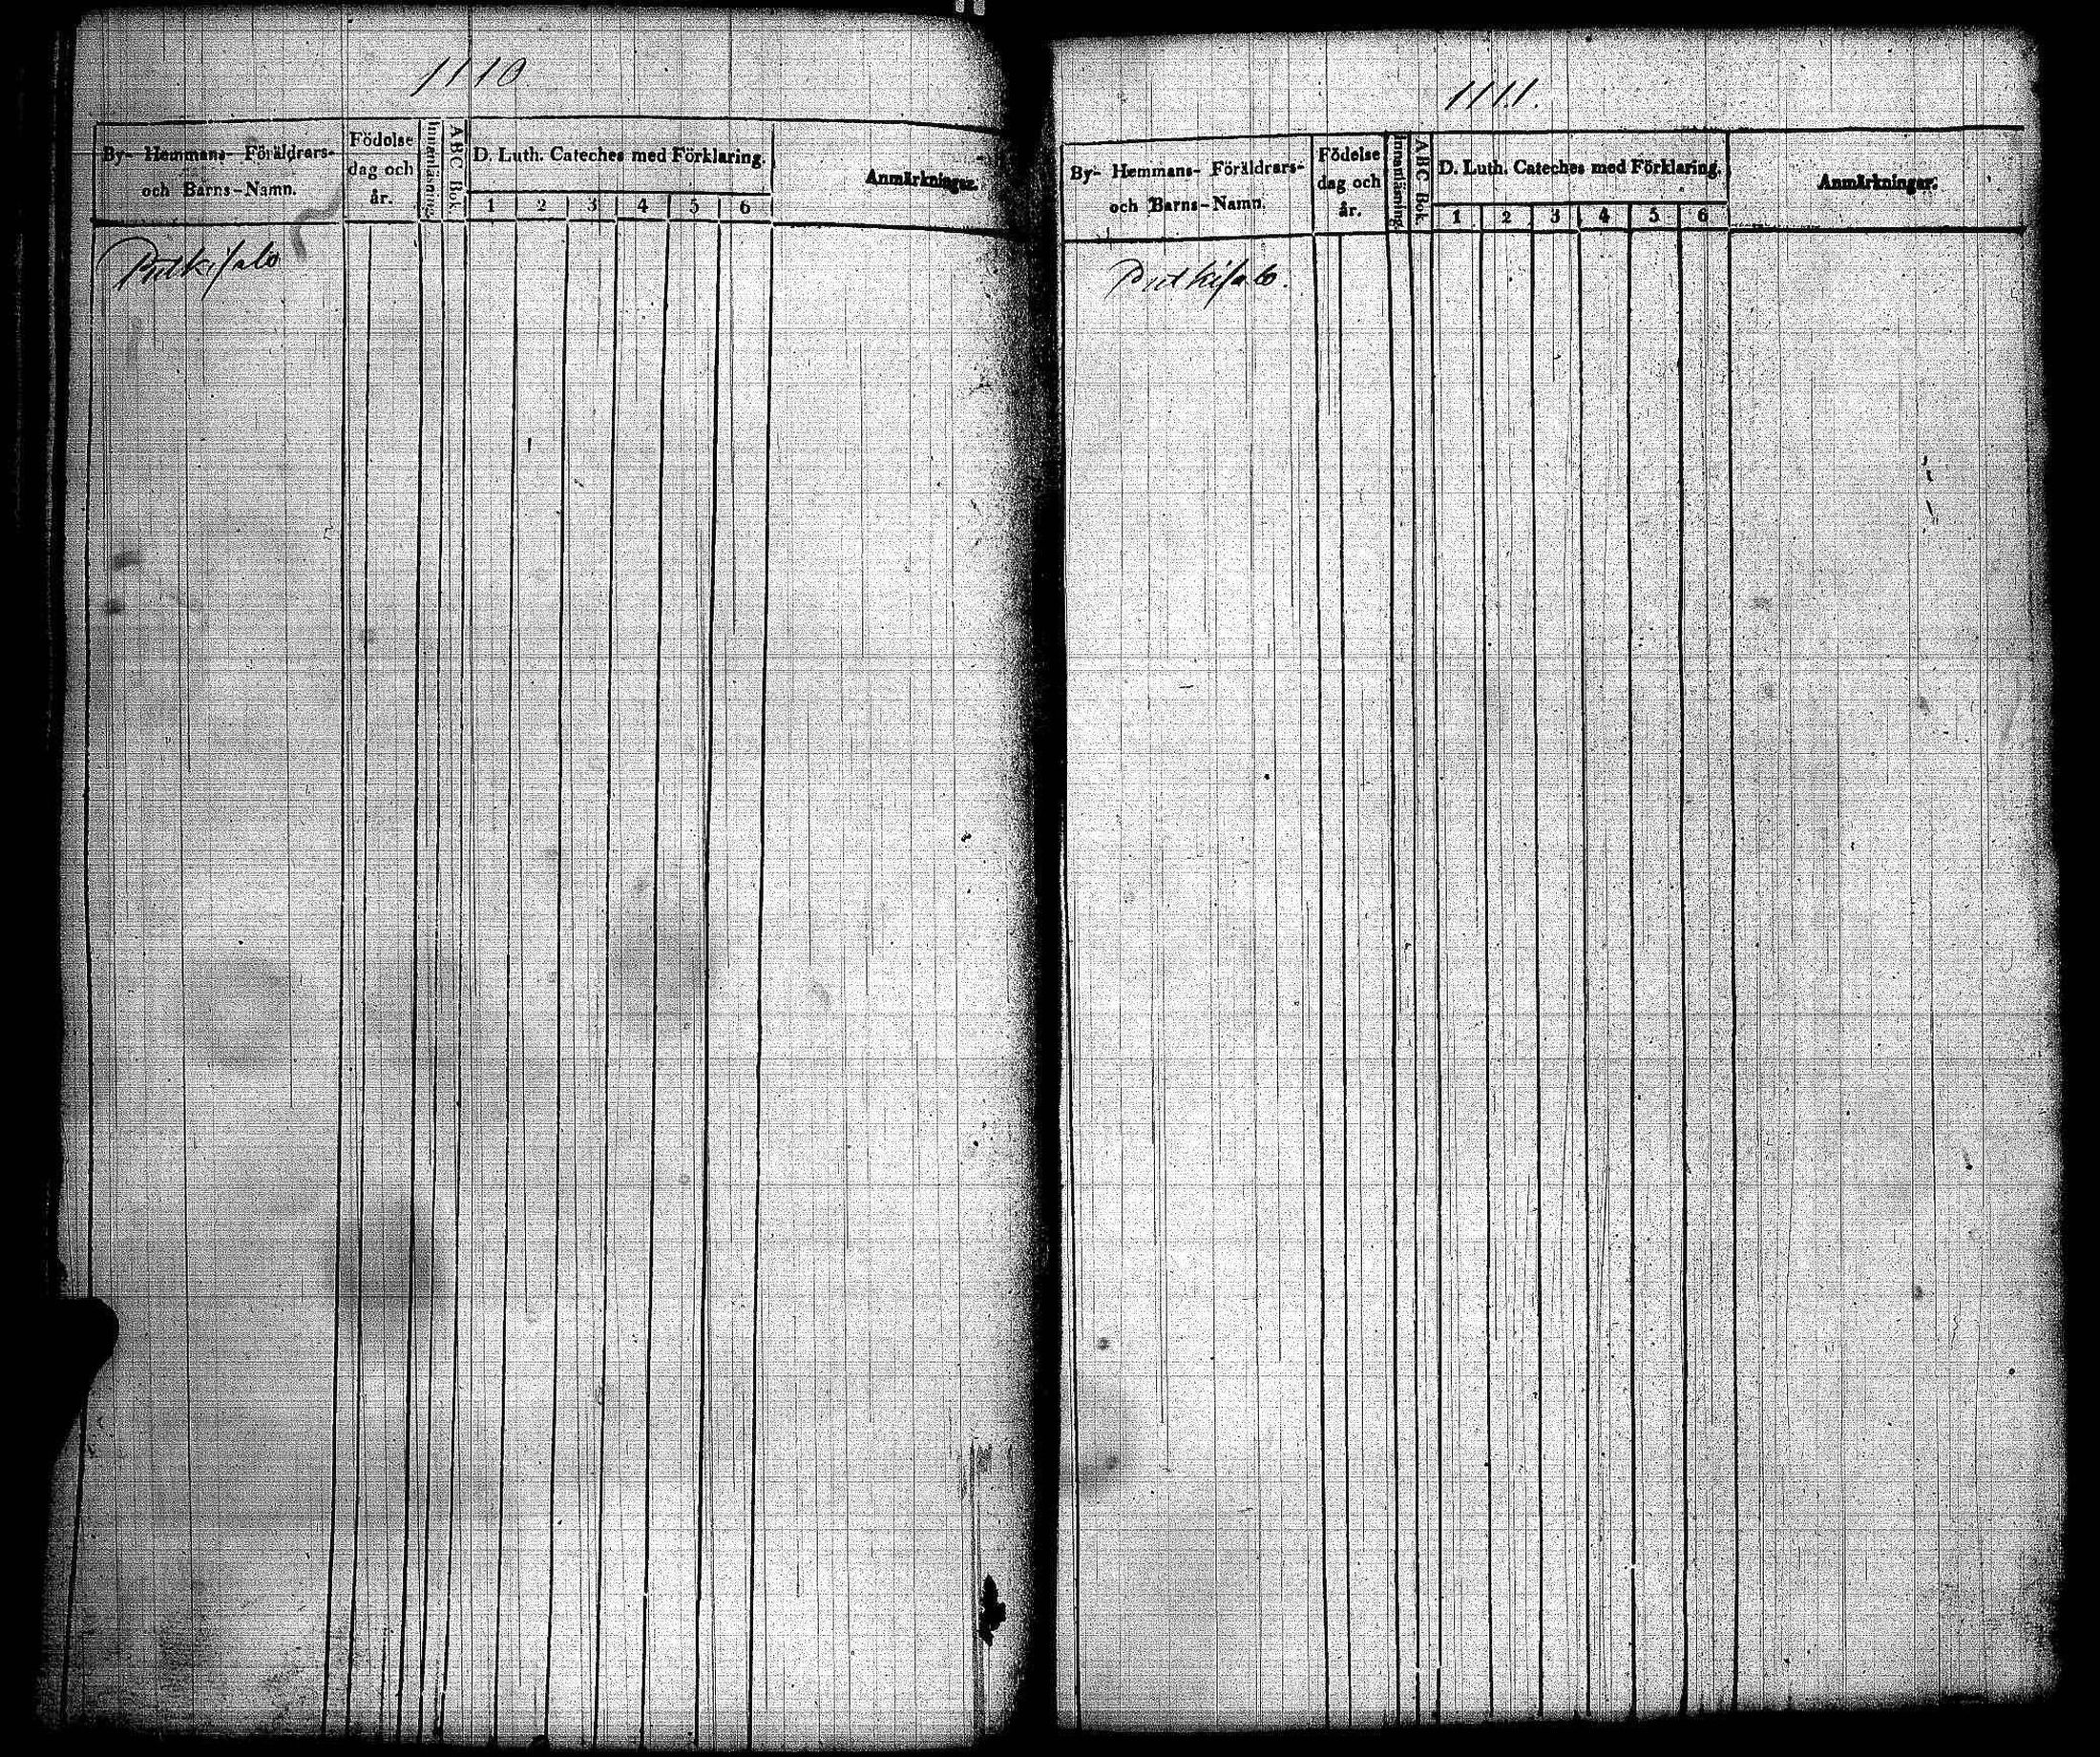 1110.
By- Hemmans- Föräldrars-
och Barns-Namn.
Födelse
dag och
år.
Innanläsning.
ABC Bok.
D. Luth. Cateches med Förklaring.
1 2 3 4 5 6
Anmärkningar.
Putkisalo
1111.
By- Hemmans- Föräldrars-
och Barns-Namn.
Födelse
dag och
år.
Innanläsning.
ABC Bok.
D. Luth. Cateches med Förklaring.
1 2 3 4 5 6
Anmärkningar.
Putkisalo.